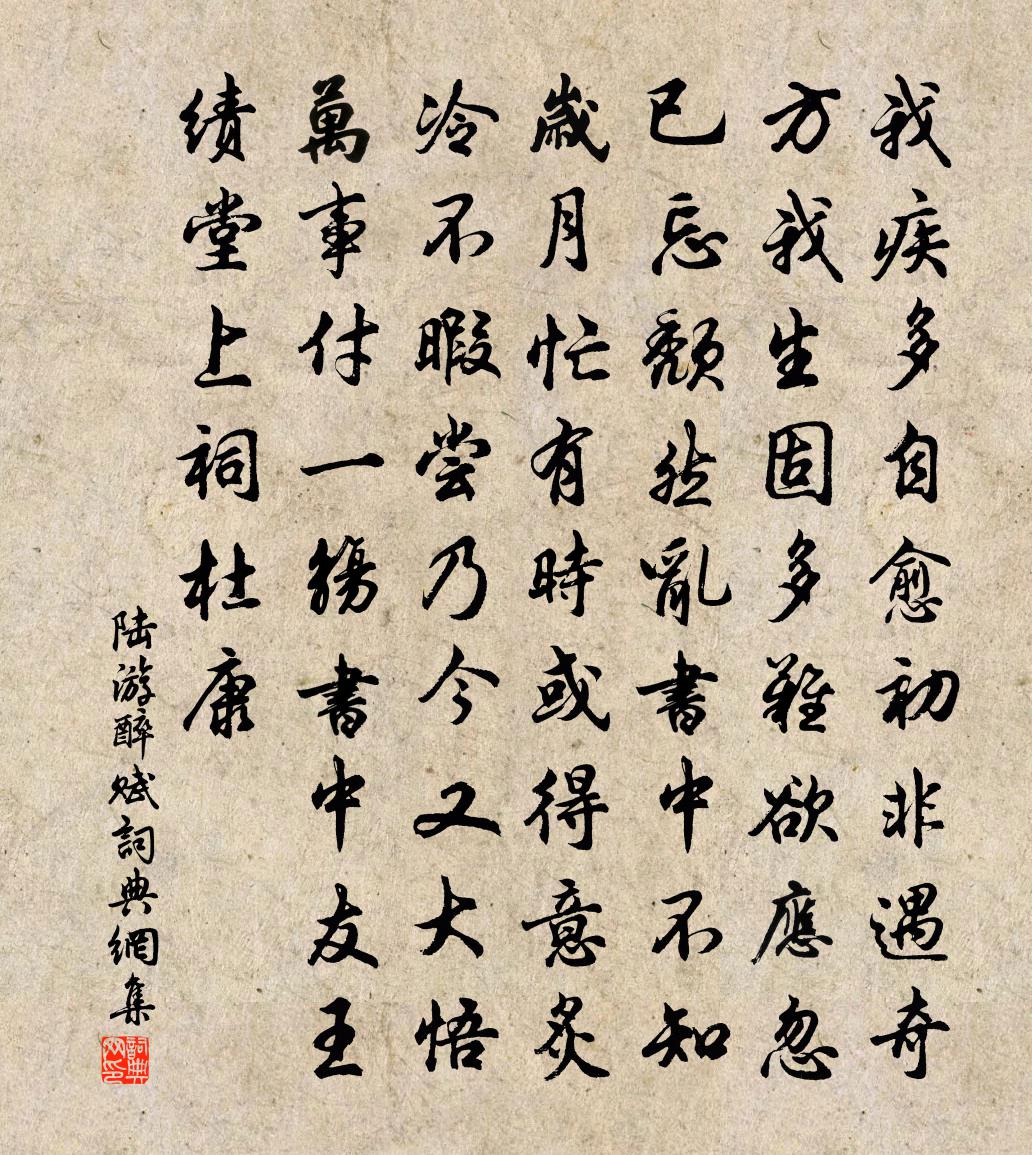 我疾多自愈初非遇奇
方我生固多難欲應忽
已忘頽然亂書中不知
歲月忙有時或得意炙
冷不暇嘗乃今又大悟
萬事付一觴書中友王
績堂上祠杜康
陆游醉赋詞典網集
詞典网印